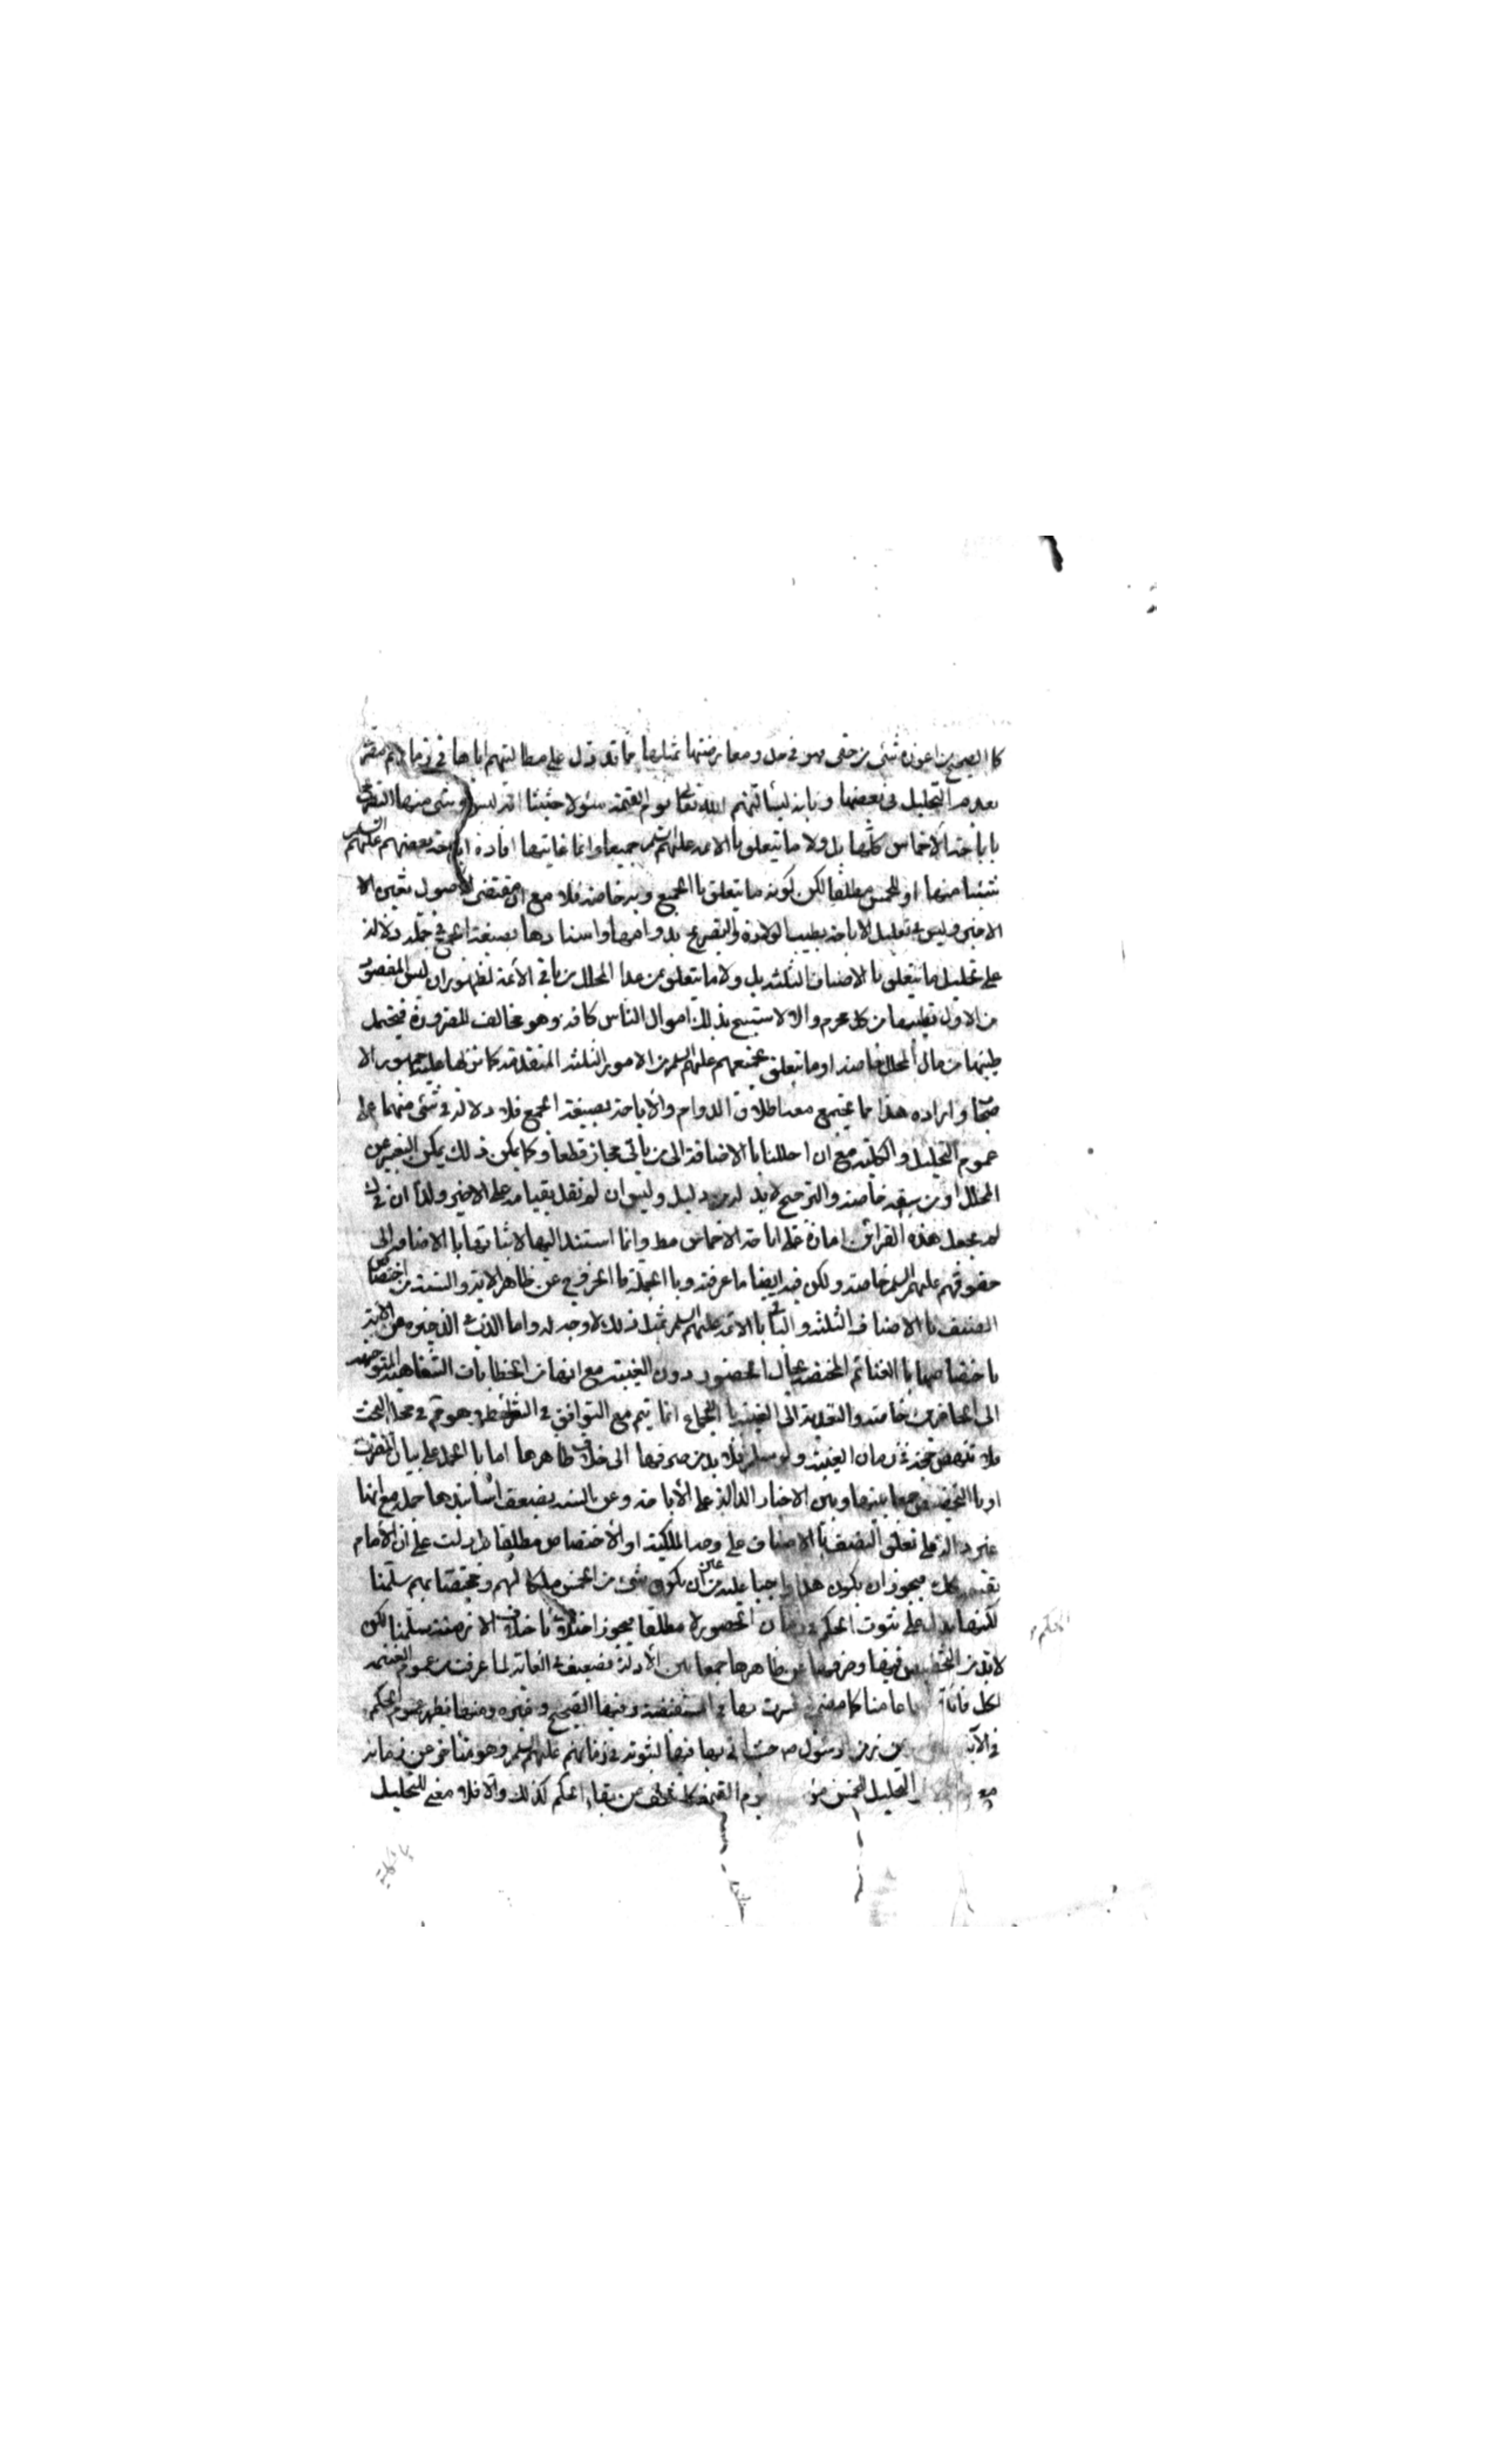 كا الصحيح من اعوزه شئ من حقى فهو فى حل ومعارضتها بمثلها مما قد دل على مطالبتهم اياها فى زمانهم مصرحة
بعدم التحليل فى بعضها وبانه ليسألنهم الله تعالى يوم القيمة سئولا حثيثا انه ليس فى شئ منها التصريح
باباحة الاخماس كلها بل ولا ما يتعلق بالائمة عليهم السلم جميعا وانما غايتها افادة اباحة بعضهم عليهم السلم
شيئا منها او الخمس مطلقا لكن كونه ما يتعلق بالجميع وبه خاصة فلا مع ان مقتضى الاصول تعين الا
الاخير وليس فى تعليل الاباحة بطيب الولادة والتصريح بدوامها واسنادها بصيغة الجمع فى جملة دلالة
على تحليل ما يتعلق بالاصناف الثلثة بل ولا ما يتعلق بمن عدا المحلل من باقى الائمة لظهور ان ليس المقصود
من الاول تطييبها من كل محرم والا لاستبيح بذلك اموال الناس كافة وهو مخالف للضرورة فيحتمل
طيبها من مال المحلل خاصة او ما يتعلق بجميعهم عليهم السلم من الامور الثلثة المتقدمة كما نزلها عليه جمهور الا
صحابنا وارادة هذا مما يجتمع معه اطلاق الدوام والاباحة بصيغة الجمع فلا دلالة فى شئ منهما على
عموم التحليل والكلية مع ان احللنا بالاضافة الى من يأتى مجاز قطعا وكما يمكن ذلك يمكن التعبير عن
المحلل او من سبقه خاصة والترجيح لا بد له من دليل وليس ان لم نقل بقيامه على الاخير ولذا ان فى
لم يجعل هذه القرائن امارة على اباحة الاخماس مط وانما استند اليها لاثباتها بالاضافة الى
حقوقهم عليهم السلم خاصة ولكن فيه ايضا ما عرفته وبالجملة فالخروج عن ظاهر الاية والسنة من اختصاص
النصف بالاصناف الثلثة والباقى بالائمة عليهم السلم بمثل ذلك لا وجه له واما الذب فى الذخيرة عن الاية
باختصاصها بالغنائم المختصة بحال الحضور دون الغيبة مع انها من الخطابات الشفاهية المتوجهة
الى الحاضرين خاصة والتعدية الى الغيبة بالاجماع انما يتم مع التوافق فى الشرائط وهو مم فى محل البحث
فلا تنهض حجة فى زمان الغيبة ولو سلم فلا بد من صرفها الى خلاف ظاهرها اما بالحمل على بيان المصرف
او بالتخصيص جمعا بينها وبين الاخبار الدالة على الاباحة وعن السنة بضعف اسانيدها جملة مع انها
غير دالة على تعلق النصف بالاصناف على وجه الملكية او الاختصاص مطلقا بل دلت على ان الامام
يقسمه كك فيجوز ان يكون هذا واجبا عليه من غير ان يكون شئ من الخمس ملكا لهم ومختصا بهم سلمنا
لكنها تدل على ثبوت الحكم فى زمان الحضور لا مطلقا فيجوز اختلافه باختلاف الازمنة سلمنا لكن
لا بد من التخصيص فيها وصرفها عن ظاهرها جمعا بين الادلة فضعيف فى الغاية لما عرفت من عموم الغنيمة
لكل فائدة باجماعنا كما مضى صرحت بها فى المستفيضة وفيها الصحيح وغيره ومنها يظهر عموم الحكم
فى الآية عن زمن الرسول ص حيث لبثوته فى زمانهم عليهم السلم وهو متأخر عن زمانه
مع التحليل الخمس يوم القيمة كاشف عن بقاء الحكم كذلك والا فلا معنى للتحليل